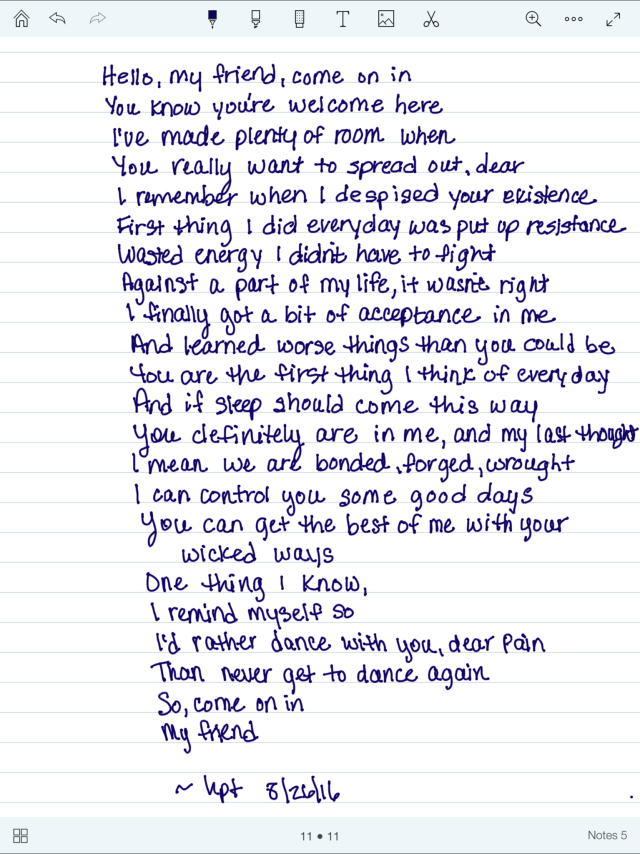 Hello, my friend, come on in
You know you're welcome here
I've made plenty of room when
You really want to spread out, dear
I remember when I despised your existence
First thing I did everyday was put up resistance
Wasted energy I didn't have to fight
Against a part of my life, it wasn't right
I finally got a bit of acceptance in me
And learned worse things than you could be
You are the first thing I think of everyday
And if sleep should come this way
You definitely are in me, and my last thought
I mean we are bonded, forged, wrought
I can control you some good days
You can get the best of me with your
wicked ways
One thing I know,
I remind myself so
I'd rather dance with you, dear Pain
Than never get to dance again
So, come on in
My friend
~ kpt 8/26/16
11 • 11
Notes 5